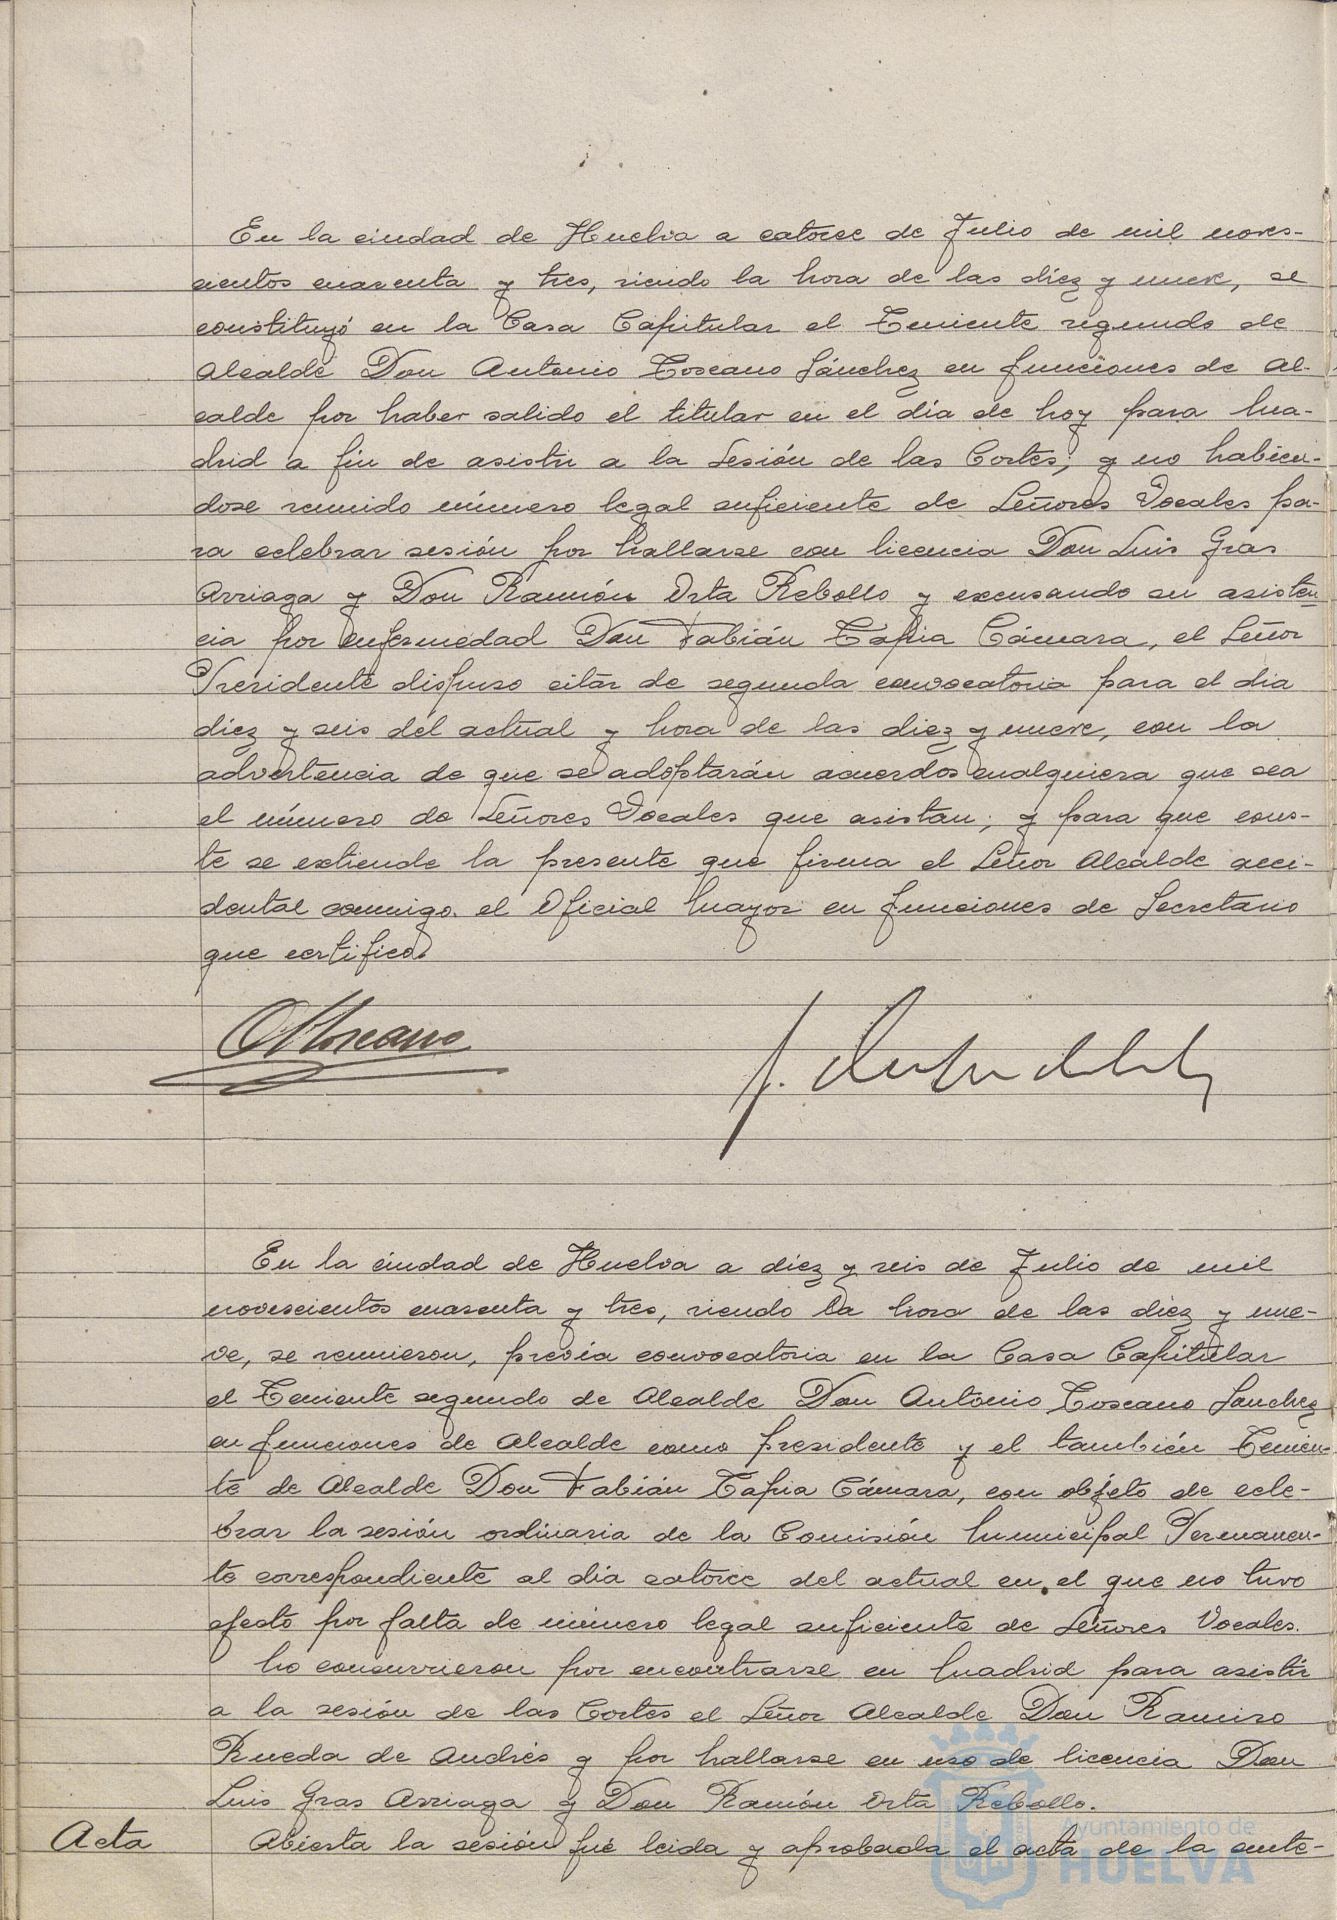 En la ciudad de Huelva a catorce de Julio de mil noves-
cientos cuarenta y tres, siendo la hora de las diez y nueve, se
constituyó en la Casa Capitular el Teniente segundo de
Alcalde Don Antonio Toscano Sánchez en funciones de Al-
calde por haber salido el titular en el día de hoy para Ma-
drid a fin de asistir a la Sesión de las Cortes; y no habien-
dose reunido número legal suficiente de Señores Vocales pa-
ra celebrar sesión por hallarse con licencia Don Luis Gras
Arriaga y Don Ramón Orta Rebollo y excusando su asisten-
cia por enfermedad Don Fabián Tapia Cámara, el Señor
Presidente dispuso citar de segunda convocatoria para el dia
diez y seis del actual y hora de las diez y nueve, con la
advertencia de que se adoptarán acuerdos cualquiera que sea
el número de Señores Vocales que asistan; y para que cons-
te se extiende la presente que firma el Señor Alcalde acci-
dental conmigo el Oficial Mayor en funciones de Secretario
que certifico.
AToscano
En la ciudad de Huelva a diez y seis de Julio de mil
novescientos cuarenta y tres, siendo la hora de las diez y nue-
ve, se reunieron, previa convocatoria en la Casa Capitular
el Teniente segundo de Alcalde Don Antonio Toscano Sanchez
en funciones de Alcalde como presidente y el también Tenien-
te de Alcalde Don Fabián Tapia Cámara, con objeto de cele-
brar la sesión ordinaria de la Comisión Municipal Permanen-
te correspondiente al día catorce del actual en el que no tuvo
efecto por falta de número legal suficiente de Señores Vocales.
No concurrieron por encontrarse en Madrid para asistir
a la sesión de las Cortes el Señor Alcalde Don Ramiro
Rueda de Andrés y por hallarse en uso de licencia Don
Luis Gras Arriaga y Don Ramón Orta Rebollo.
Acta Abierta la sesión fué leida y aprobada el acta de la ante-
Ayuntamiento de
HUELVA